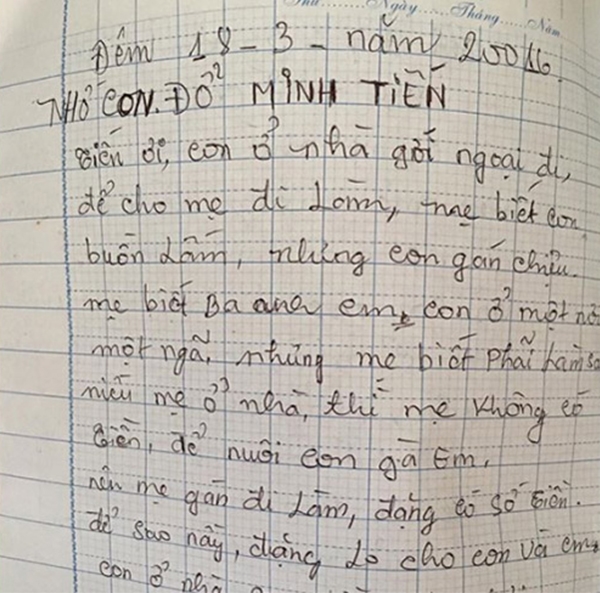 Ngày Tháng Năm
Đêm 18-3-năm 20016.
NHỎ CON. ĐỖ MINH TIẾN
Tiến ơi, con ở nhà gới ngoại đi,
để cho mẹ đi Làm, mẹ biết con
buồn Lắm, nhưng con gắn chiệu.
mẹ biết Ba anh em, con ở một nơ
một ngã, nhưng mẹ biết phải Làm sa
niếu mẹ ở nhà, thì mẹ không có
tiền, để nuôi con gà Em,
nên mẹ gắn đi Làm, dạng có số tiền.
để sao này, đặng Lo cho con và em
con ở nhà